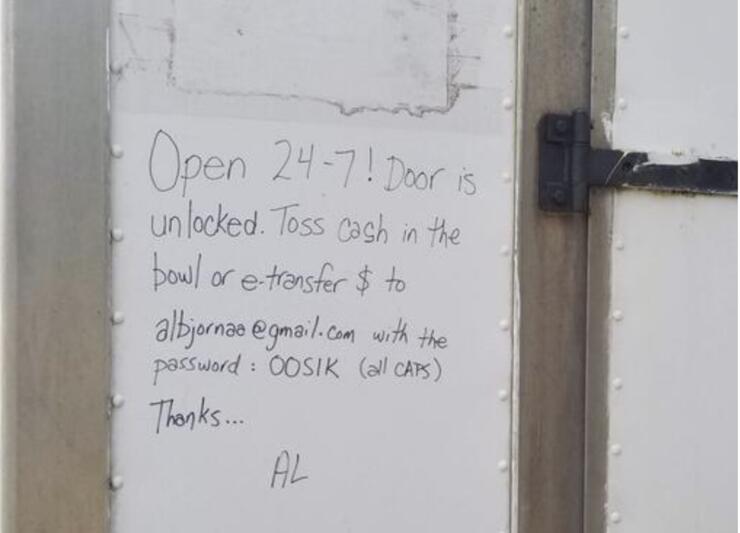 Open 24-7! Door is
unlocked. Toss cash in the
bowl or e-transfer $ to
albjornaa@gmail.com with the
password: OOSIK (all CAPS)
Thanks...
AL